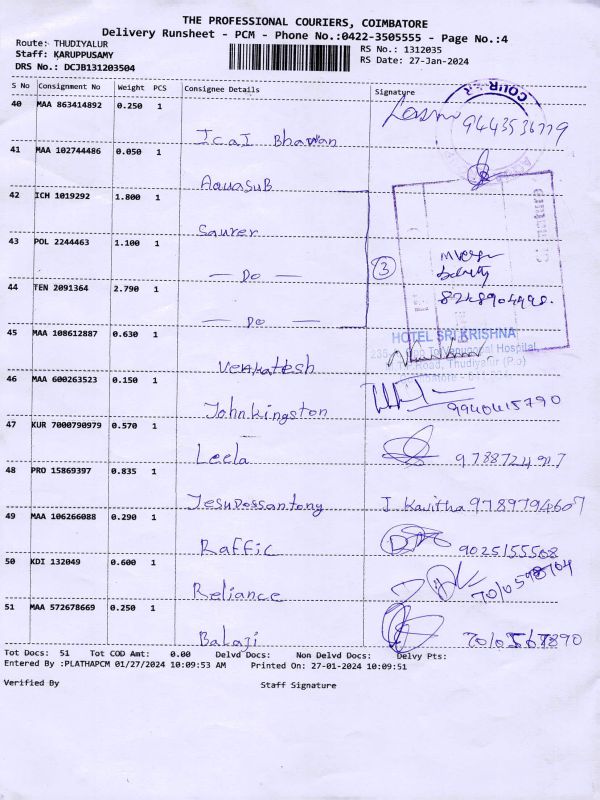 THE PROFESSIONAL COURIERS, COIMBATORE
Delivery Runsheet - PCM - Phone No.:0422-3505555 - Page No.:4
Route: THUDIYALUR
Staff: KARUPPUSAMY
RS No.: 1312035
DRS No.: DCJB131203504
RS Date: 27-Jan-2024
S No Consignment No Weight PCS Consignee Details Signature
40 MAA 863414892 0.250 1
COURIER
9443536779
Icai Bhawan
41 MAA 102744486 0.050 1
AquaSuB
42 ICH 1019292 1.800 1
Saurer
43 POL 2244463 1.100 1
— Do —
3
44 TEN 2091364 2.790 1
8248904498.
— Do —
45 MAA 108612887 0.630 1
HOTEL SRI KRISHNA
Hospital,
Road, Thudiyalur (P.o)
Venkatesh
46 MAA 600263523 0.150 1
Johnkingston
9940415790
47 KUR 7000790979 0.570 1
Leela
9788724917
48 PRO 15869397 0.835 1
Jesudossantony
J. Kavitha 9789794607
49 MAA 106266088 0.290 1
Raffic
9025155508
50 KDI 132049 0.600 1
Reliance
51 MAA 572678669 0.250 1
Balaji
7010567890
Tot Docs: 51 Tot COD Amt: 0.00 Delvd Docs: Non Delvd Docs: Delvy Pts:
Entered By :PLATHAPCM 01/27/2024 10:09:53 AM Printed On: 27-01-2024 10:09:51
Verified By Staff Signature